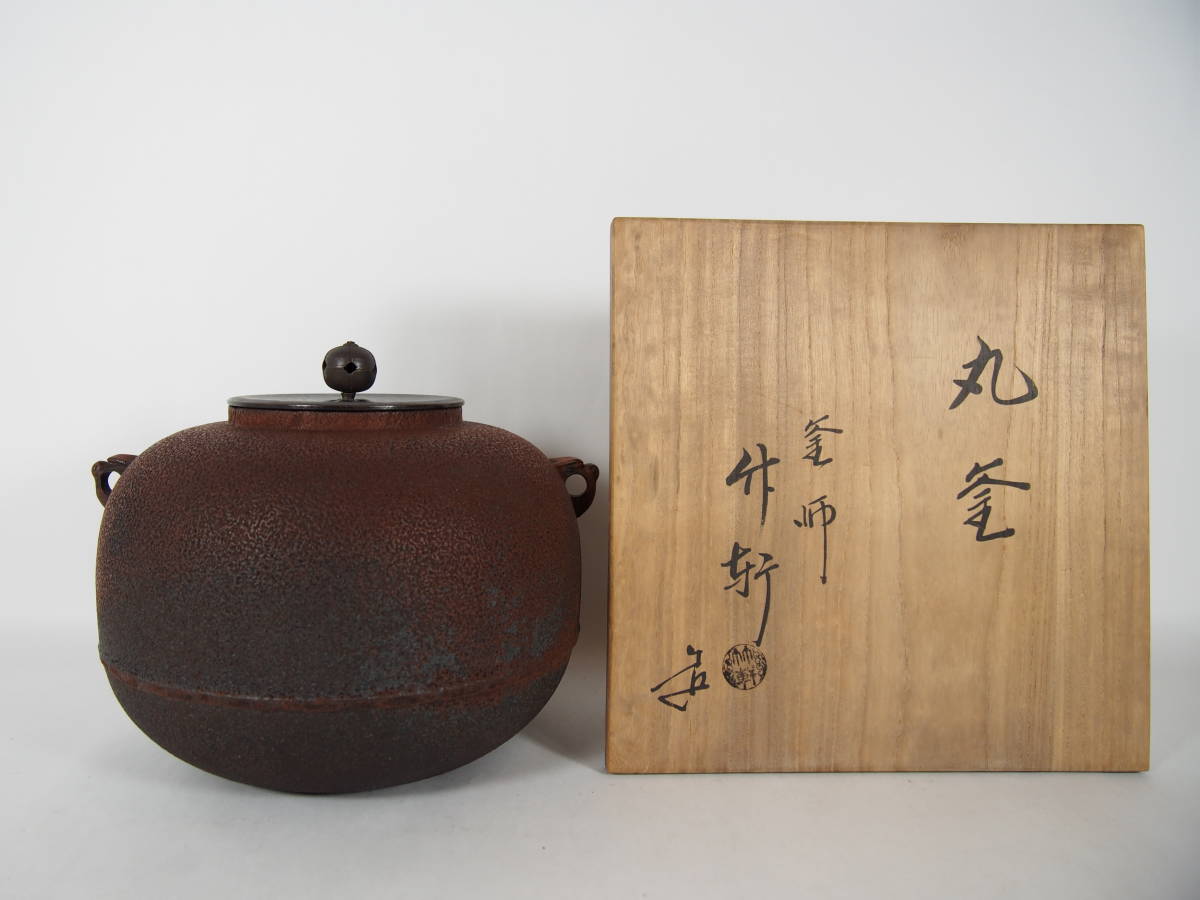 丸釜
釜師
竹軒